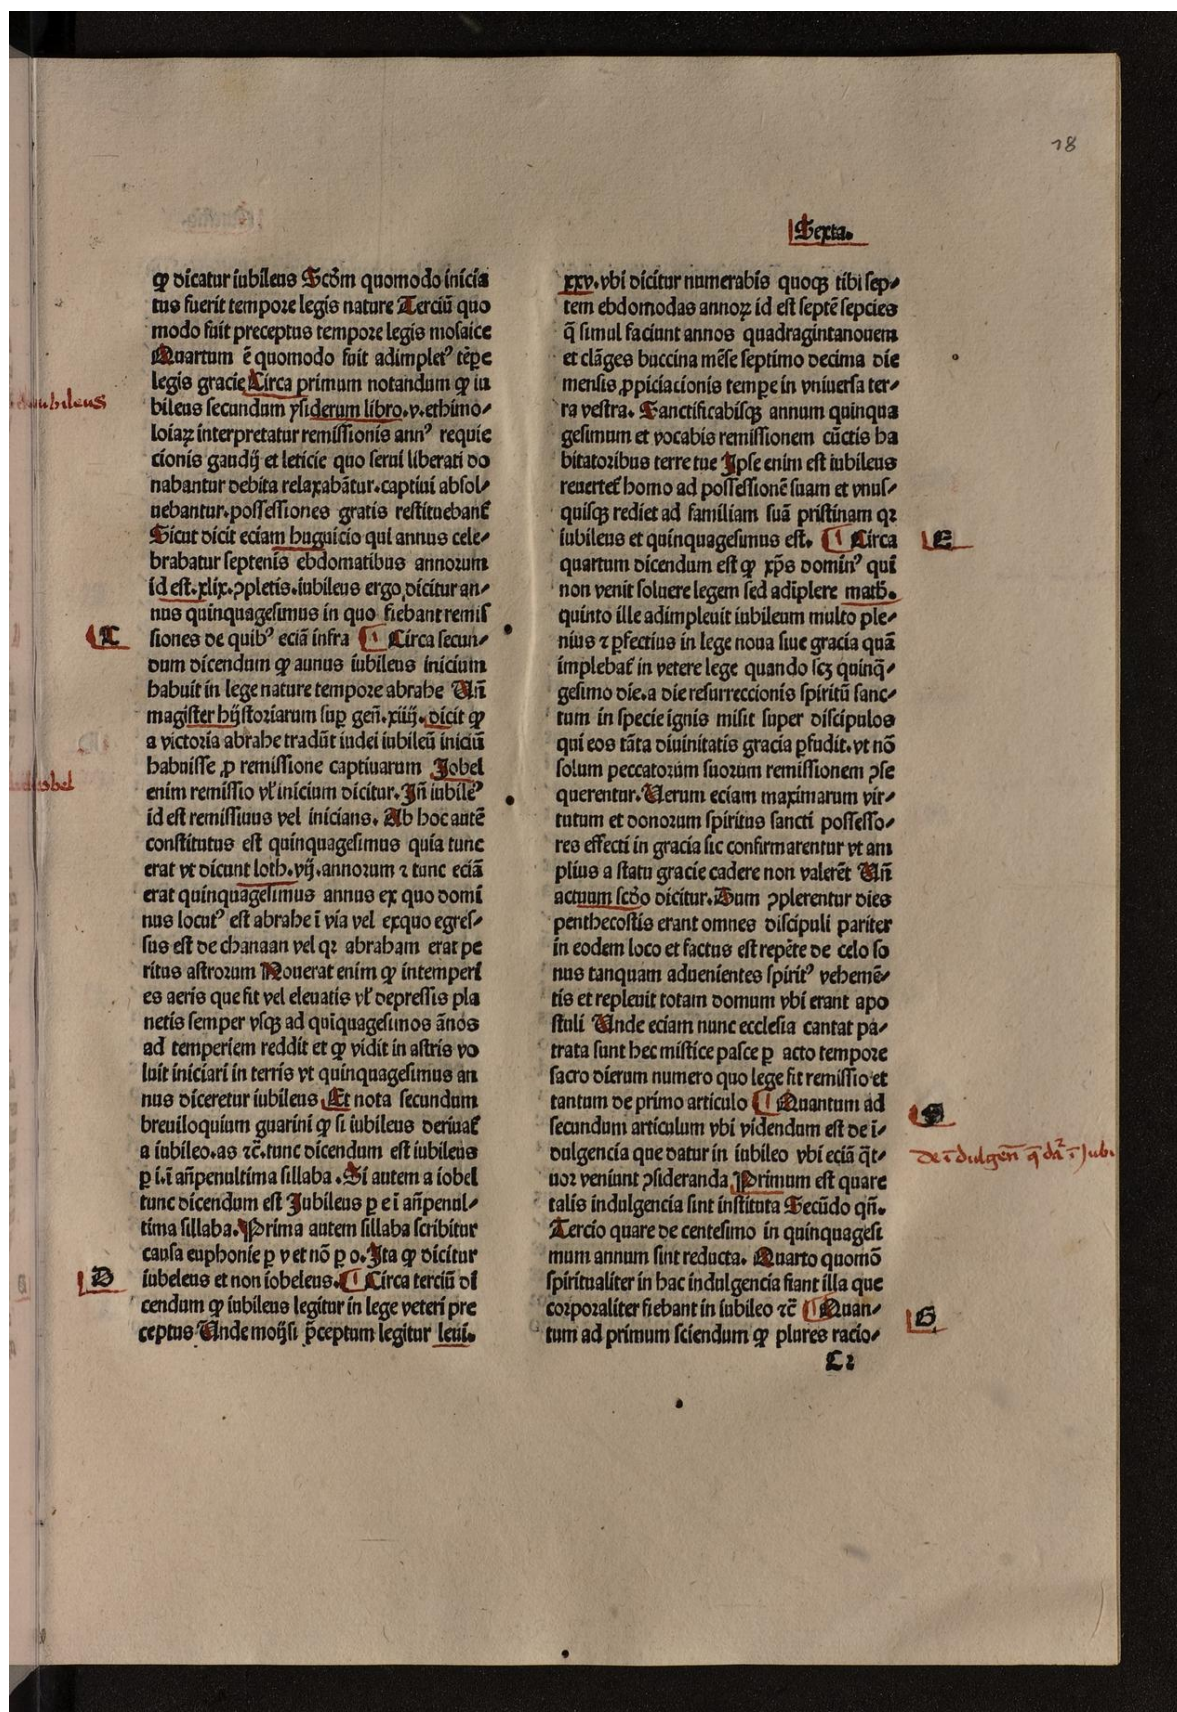 18
Sexta.
ꝙ dicatur iubileus Scḋm quomodo inicia
tus fuerit tempore legis nature Terciū quo
modo fuit preceptus tempore legis mosaice
Quartum ē quomodo fuit adimplet⁹ tēꝑe
legis gracie Circa primum notandum ꝙ iu
bileus secundum ysiderum libro.v.ethimo⸗
loiaꝝ interpretatur remissionis ann⁹ requie
cionis gaudij et leticie quo serui liberati do
nabantur debita relaxabātur.captiui absol⸗
uebantur.possessiones gratis restituebant᷑
Sicut dicit eciam huguicio qui annus cele⸗
brabatur septenis ebdomatibus annorum
id est.xlix.ꝯpletis.iubileus ergo dicitur an⸗
nus quinquagesimus in quo fiebant remis
C
siones de quib⁹ eciā infra ¶ Circa secun⸗
dum dicendum ꝙ aunus iubileus inicium
habuit in lege nature tempore abrahe Uñ
magister hijstoriarum suꝑ geñ.xiiij.dicit ꝙ
a victoria abrahe tradūt iudei iubileū iniciū
habuisse ꝓ remissione captiuarum Jobel
enim remissio vl᷑ inicium dicitur.Jñ iubile⁹
id est remissiuus vel inicians. Ab hoc autē
constitutus est quinquagesimus quia tunc
erat vt dicunt loth.vij.annorum ⁊ tunc eciā
erat quinquagesimus annus ex quo domi
nus locut⁹ est abrahe ī via vel exquo egres⸗
sus est de chanaan vel qꝛ abraham erat pe
ritus astrorum Nouerat enim ꝙ intemperi
es aeris que fit vel eleuatis vl᷑ depressis pla
netis semper vsqꝫ ad quīquagesimos ānos
ad temperiem reddit et ꝙ vidit in astris vo
luit iniciari in terris vt quinquagesimus an
nus diceretur iubileus Et nota secundum
breuiloquium guarini ꝙ si iubileus deriuat᷑
a iubileo.as ⁊c̄.tunc dicendum est iubileus
ꝑ i.ī añpenultima sillaba.Si autem a iobel
tunc dicendum est Jubileus ꝑ e ī añpenul⸗
tima sillaba.Prima autem sillaba scribitur
causa euphonie ꝑ v et nō ꝑ o.Ita ꝙ dicitur
D
iubeleus et non iobeleus.¶ Circa terciū di
cendum ꝙ iubileus legitur in lege veteri pre
ceptus Unde moijsi p̄ceptum legitur leui.
xxv.vbi dicitur numerabis quoqꝫ tibi sep⸗
tem ebdomodas annoꝝ id est septē sepcies
q̄ simul faciunt annos quadragintanouem
et clāges buccina mēse septimo decima die
mensis ꝓpiciacionis temꝑe in vniuersa ter⸗
ra vestra. Sanctificabisqꝫ annum quinqua
gesimum et vocabis remissionem cūctis ha
bitatoribus terre tue Ipse enim est iubileus
reuertet᷑ homo ad possessionē suam et vnus⸗
quisqꝫ rediet ad familiam suā pristinam qꝛ
iubileus et quinquagesimus est. ¶ Circa
E
quartum dicendum est ꝙ xp̄s domin⁹ qui
non venit soluere legem sed adīplere math.
quinto ille adimpleuit iubileum multo ple⸗
nius ⁊ ꝑfectius in lege noua siue gracia quā
implebat᷑ in vetere lege quando scꝫ quinq̄⸗
gesimo die.a die resurreccionis spiritū sanc⸗
tum in specie ignis misit super discipulos
qui eos tāta diuinitatis gracia ꝑfudit.vt nō
solum peccatorum suorum remissionem ꝯse
querentur.Uerum eciam maximarum vir⸗
tutum et donorum spiritus sancti possesso⸗
res effecti in gracia sic confirmarentur vt am
plius a statu gracie cadere non valerēt Uñ
actuum scḋo dicitur.Dum ꝯplerentur dies
penthecostis erant omnes discipuli pariter
in eodem loco et factus est repēte de celo so
nus tanquam aduenientes spirit⁹ vehemē⸗
tis et repleuit totam domum vbi erant apo
stuli Unde eciam nunc ecclesia cantat pa⸗
trata sunt hec mistice pasce ꝑ acto tempore
sacro dierum numero quo lege fit remissio et
tantum de primo articulo ¶ Quantum ad
secundum articulum vbi videndum est de ī⸗
dulgencia que datur in iubileo vbi eciā q̄t⸗
uor veniunt ꝯsideranda Primum est quare
talis indulgencia sint instituta Secūdo qñ.
Tercio quare de centesimo in quinquagesi
mum annum sint reducta. Quarto quomō
spiritualiter in hac indulgencia fiant illa que
corporaliter fiebant in iubileo ⁊c̄ ¶ Quan⸗
G
tum ad primum sciendum ꝙ plures racio⸗
C2